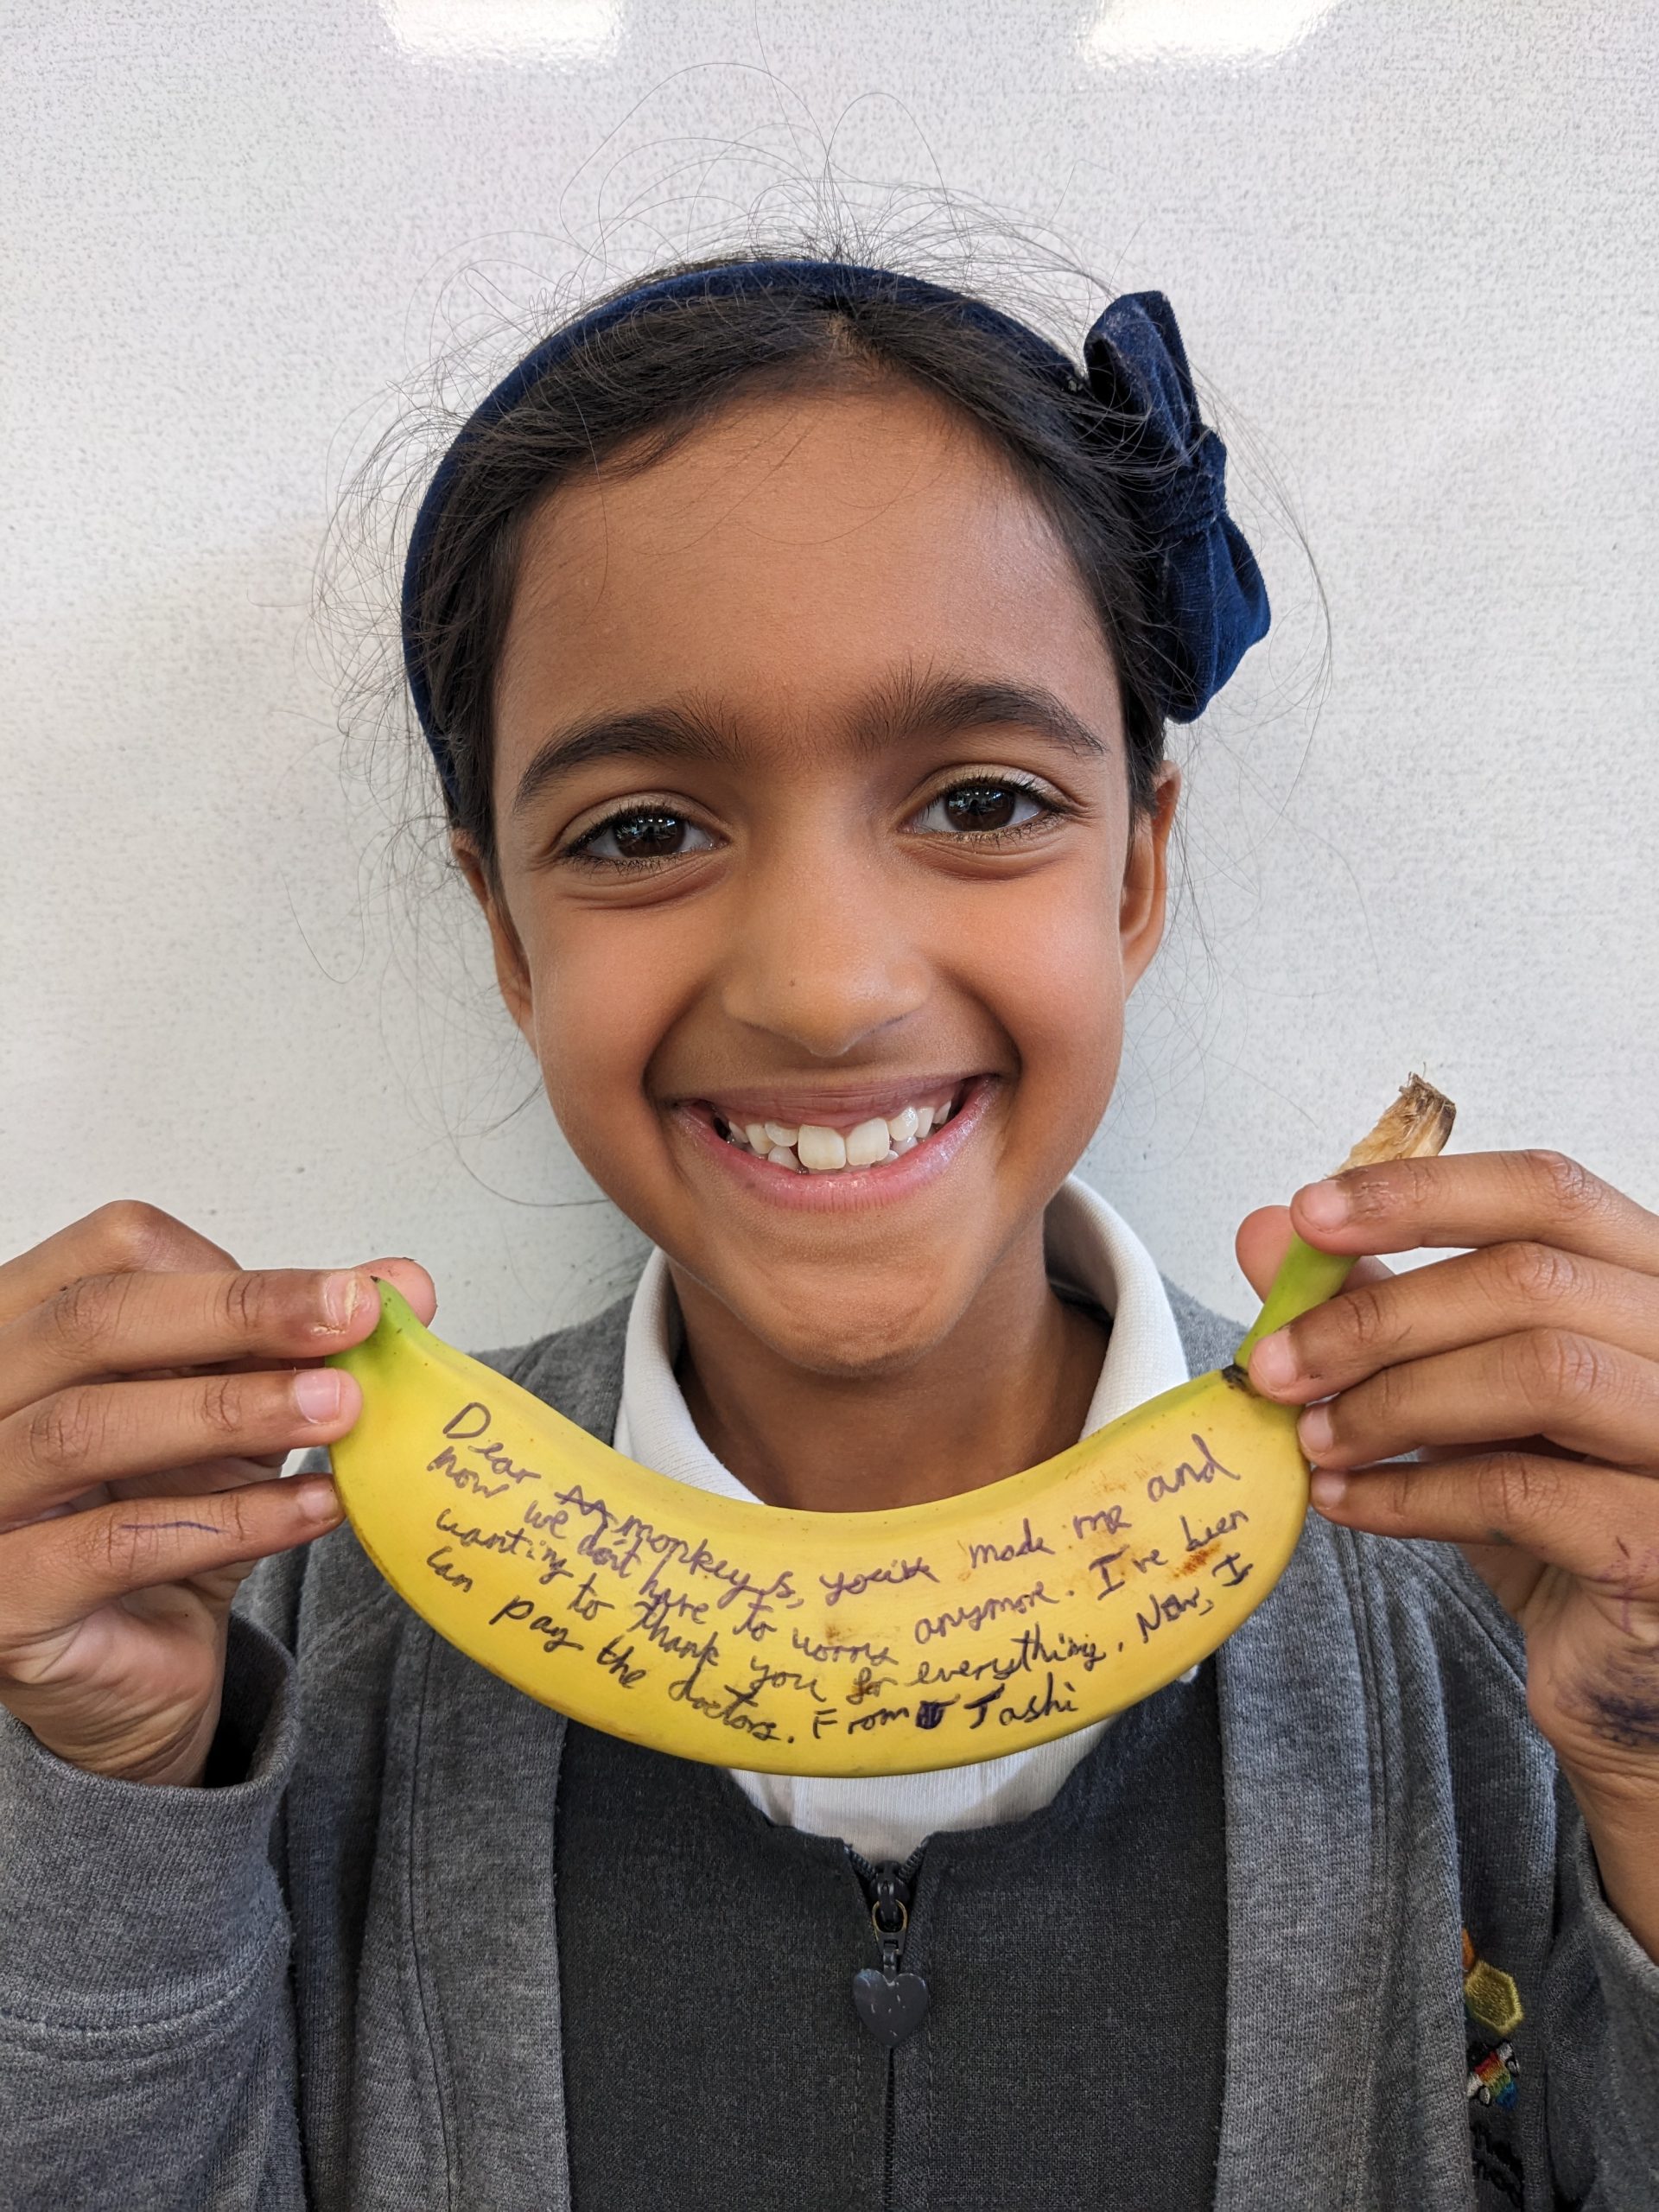 Dear monkeys, you've made me and
now we don't have to worry anymore. I've been
wanting to thank you for everything. Now, I
can pay the doctors. From Tashi